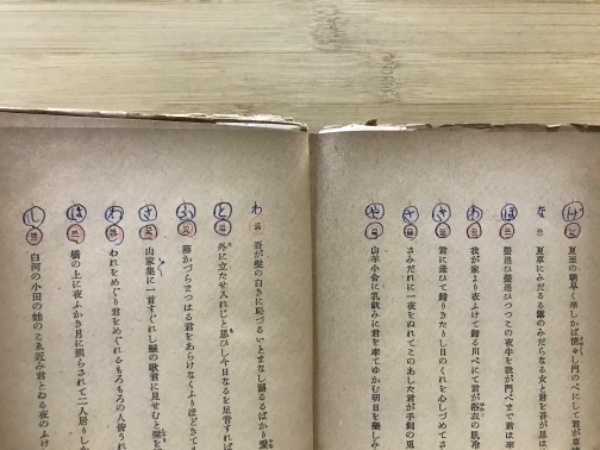 け 夏至の朝早く來しかば清々し門のべにして君が草
な 夏草にみだるる露のみだらなる女と君を吾が思は
ほ 螢追ひ螢追ひつつこの夜半を我が門べまで君は來
わ 我が家より夜ふけて歸る川べにて君が浴衣の肌冷
き 君に逢ひて歸りきたりし日のくれを心しづめてさ
さ さみだれに一夜をぬれてこのあした君が手飼の
や 山羊小舍に乳飲みに君を率てゆかむ明日を樂しみ
わ 吾が髮の白きに恥づるいとまなし溺るるばかり愛
と 外に立たせ入れじと思ひし今日なるを足音すれば
ふ 藤かづらまつはる君をあらけなくふりほどきてま
さ 山家集に一首すぐれし戀の歌君に見せむと
わ われをめぐり君をめぐれるもろもろの人皆うれ
は 橋の上に夜ふかき月に照らされて二人居りしか
し 白河の小田の蛙のこゑ近み君とぬる夜のふけ